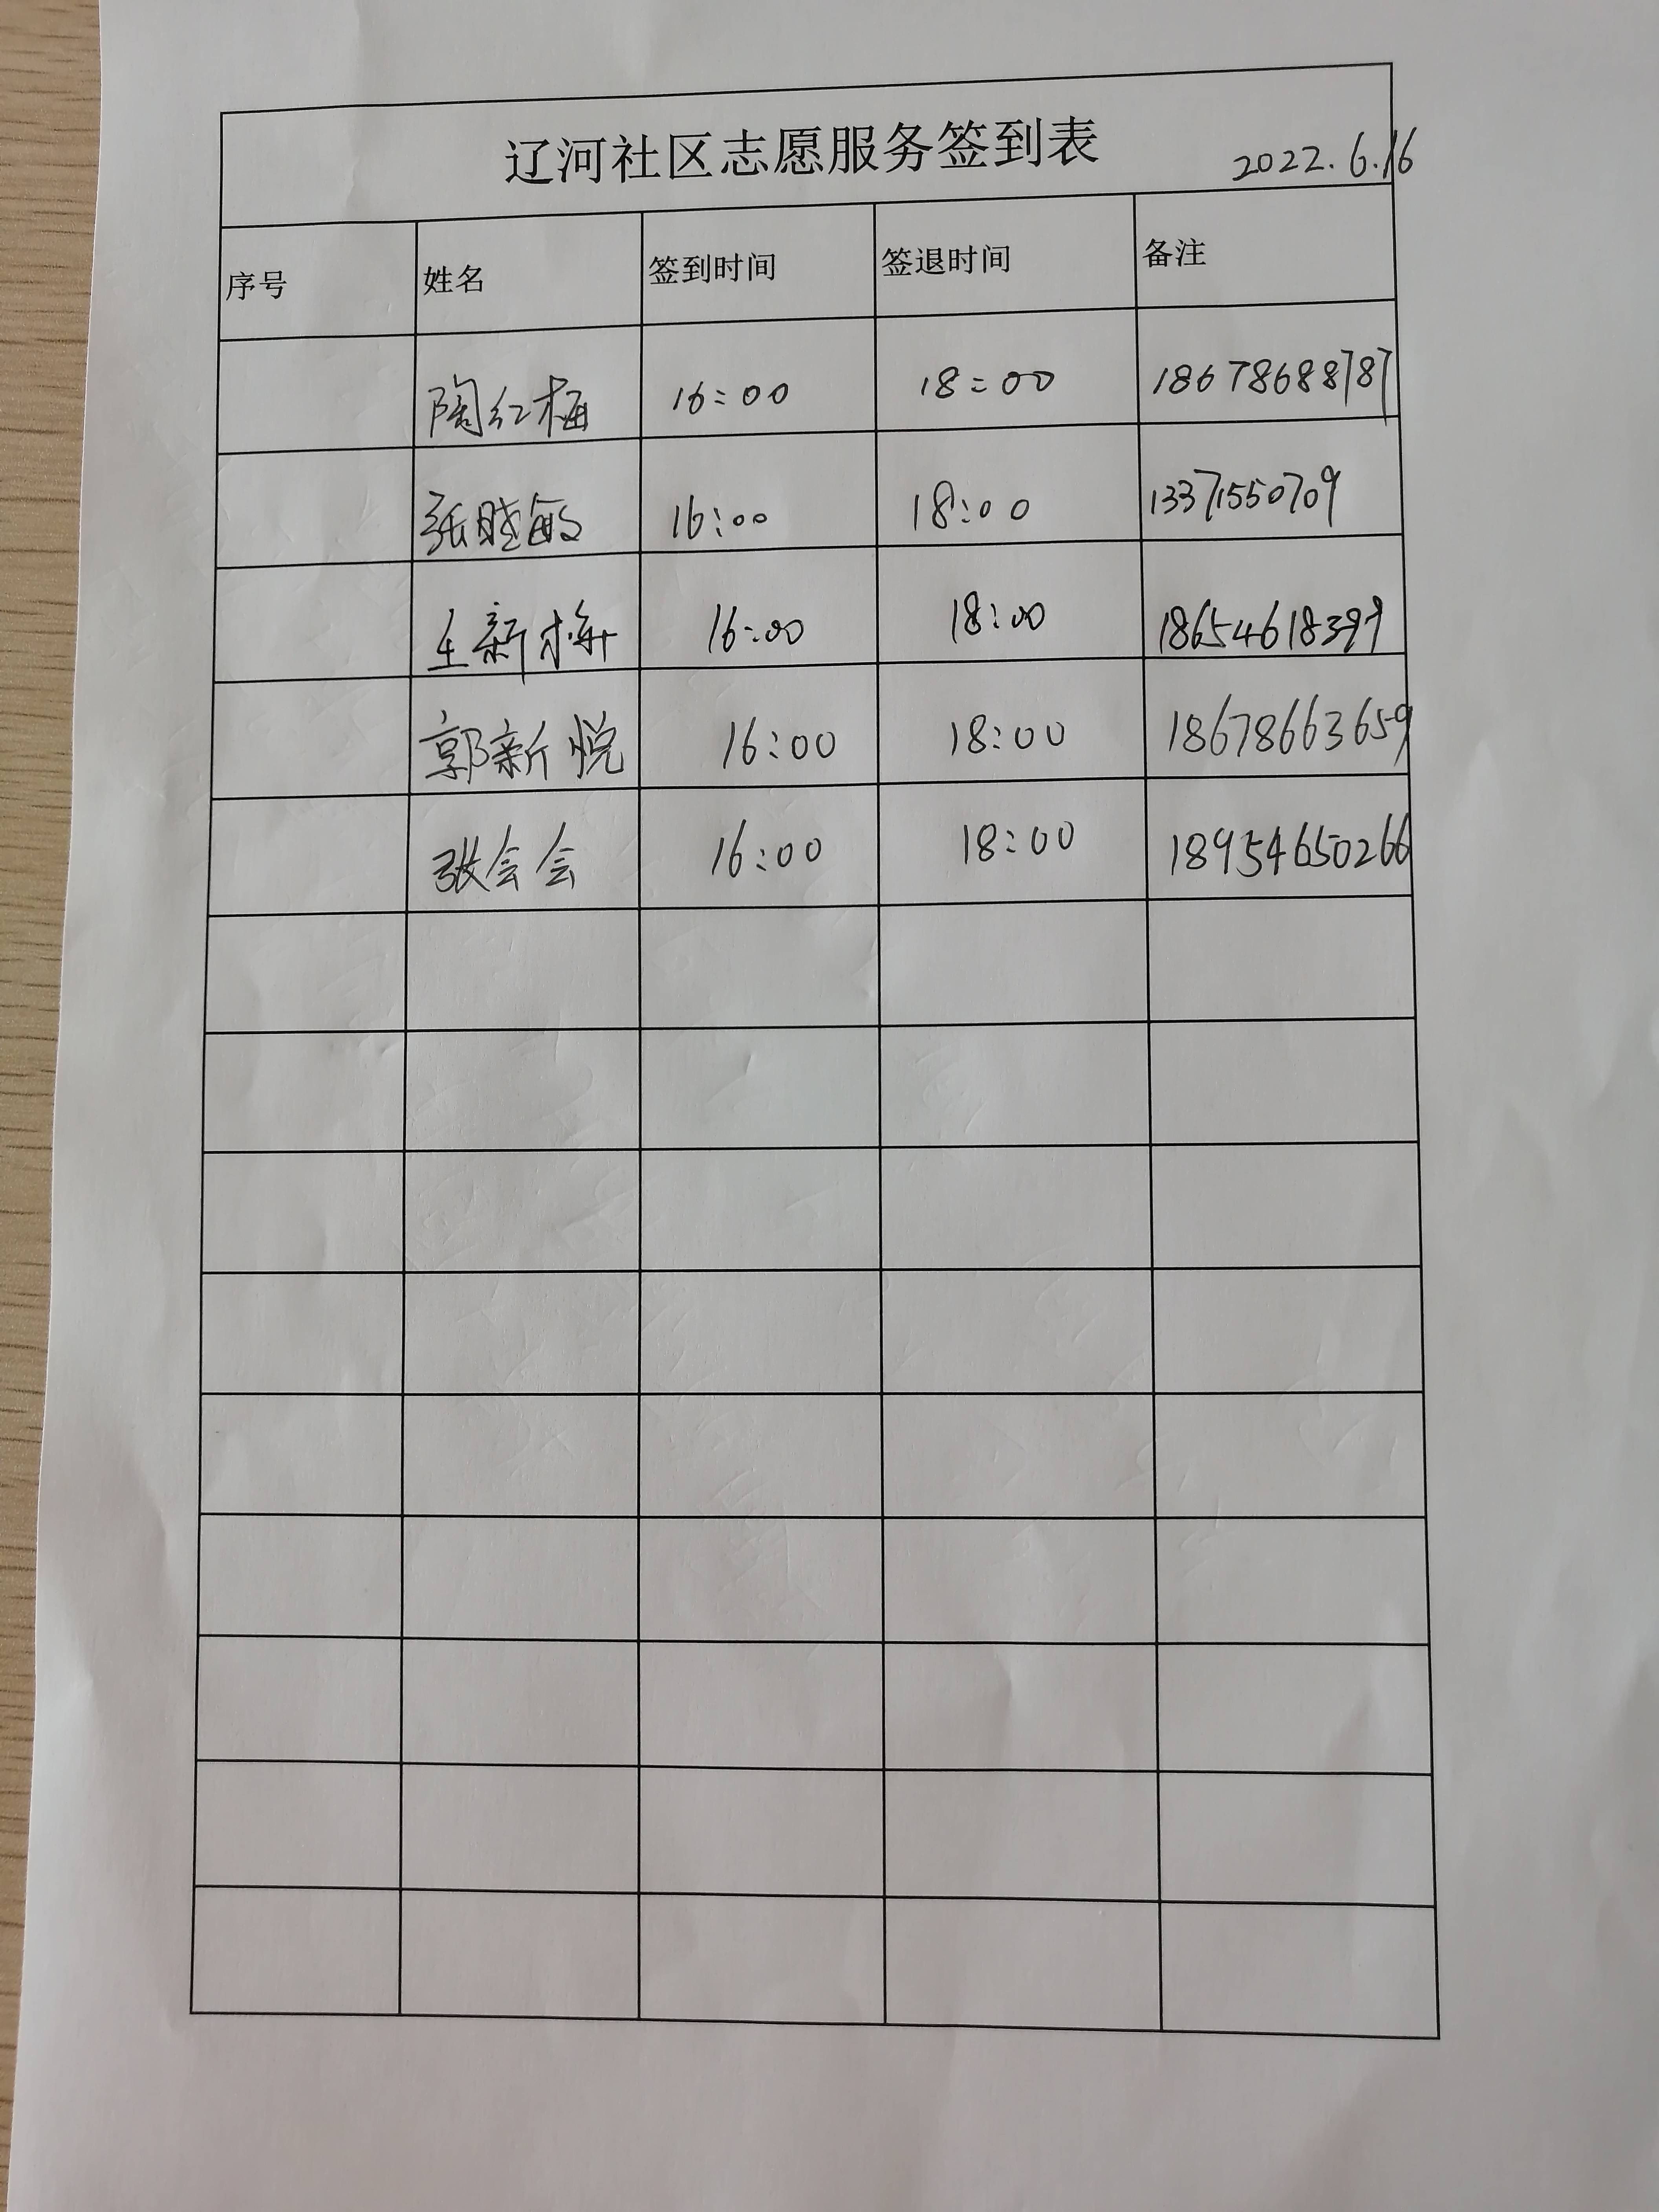 辽河社区志愿服务签到表 2022.6.16
序号 姓名 签到时间 签退时间 备注
陶红梅 16:00 18:00 18678688787
张晓敏 16:00 18:00 13371550709
王新梅 16:00 18:00 18654618399
郭新悦 16:00 18:00 18678663659
张会会 16:00 18:00 18954650266